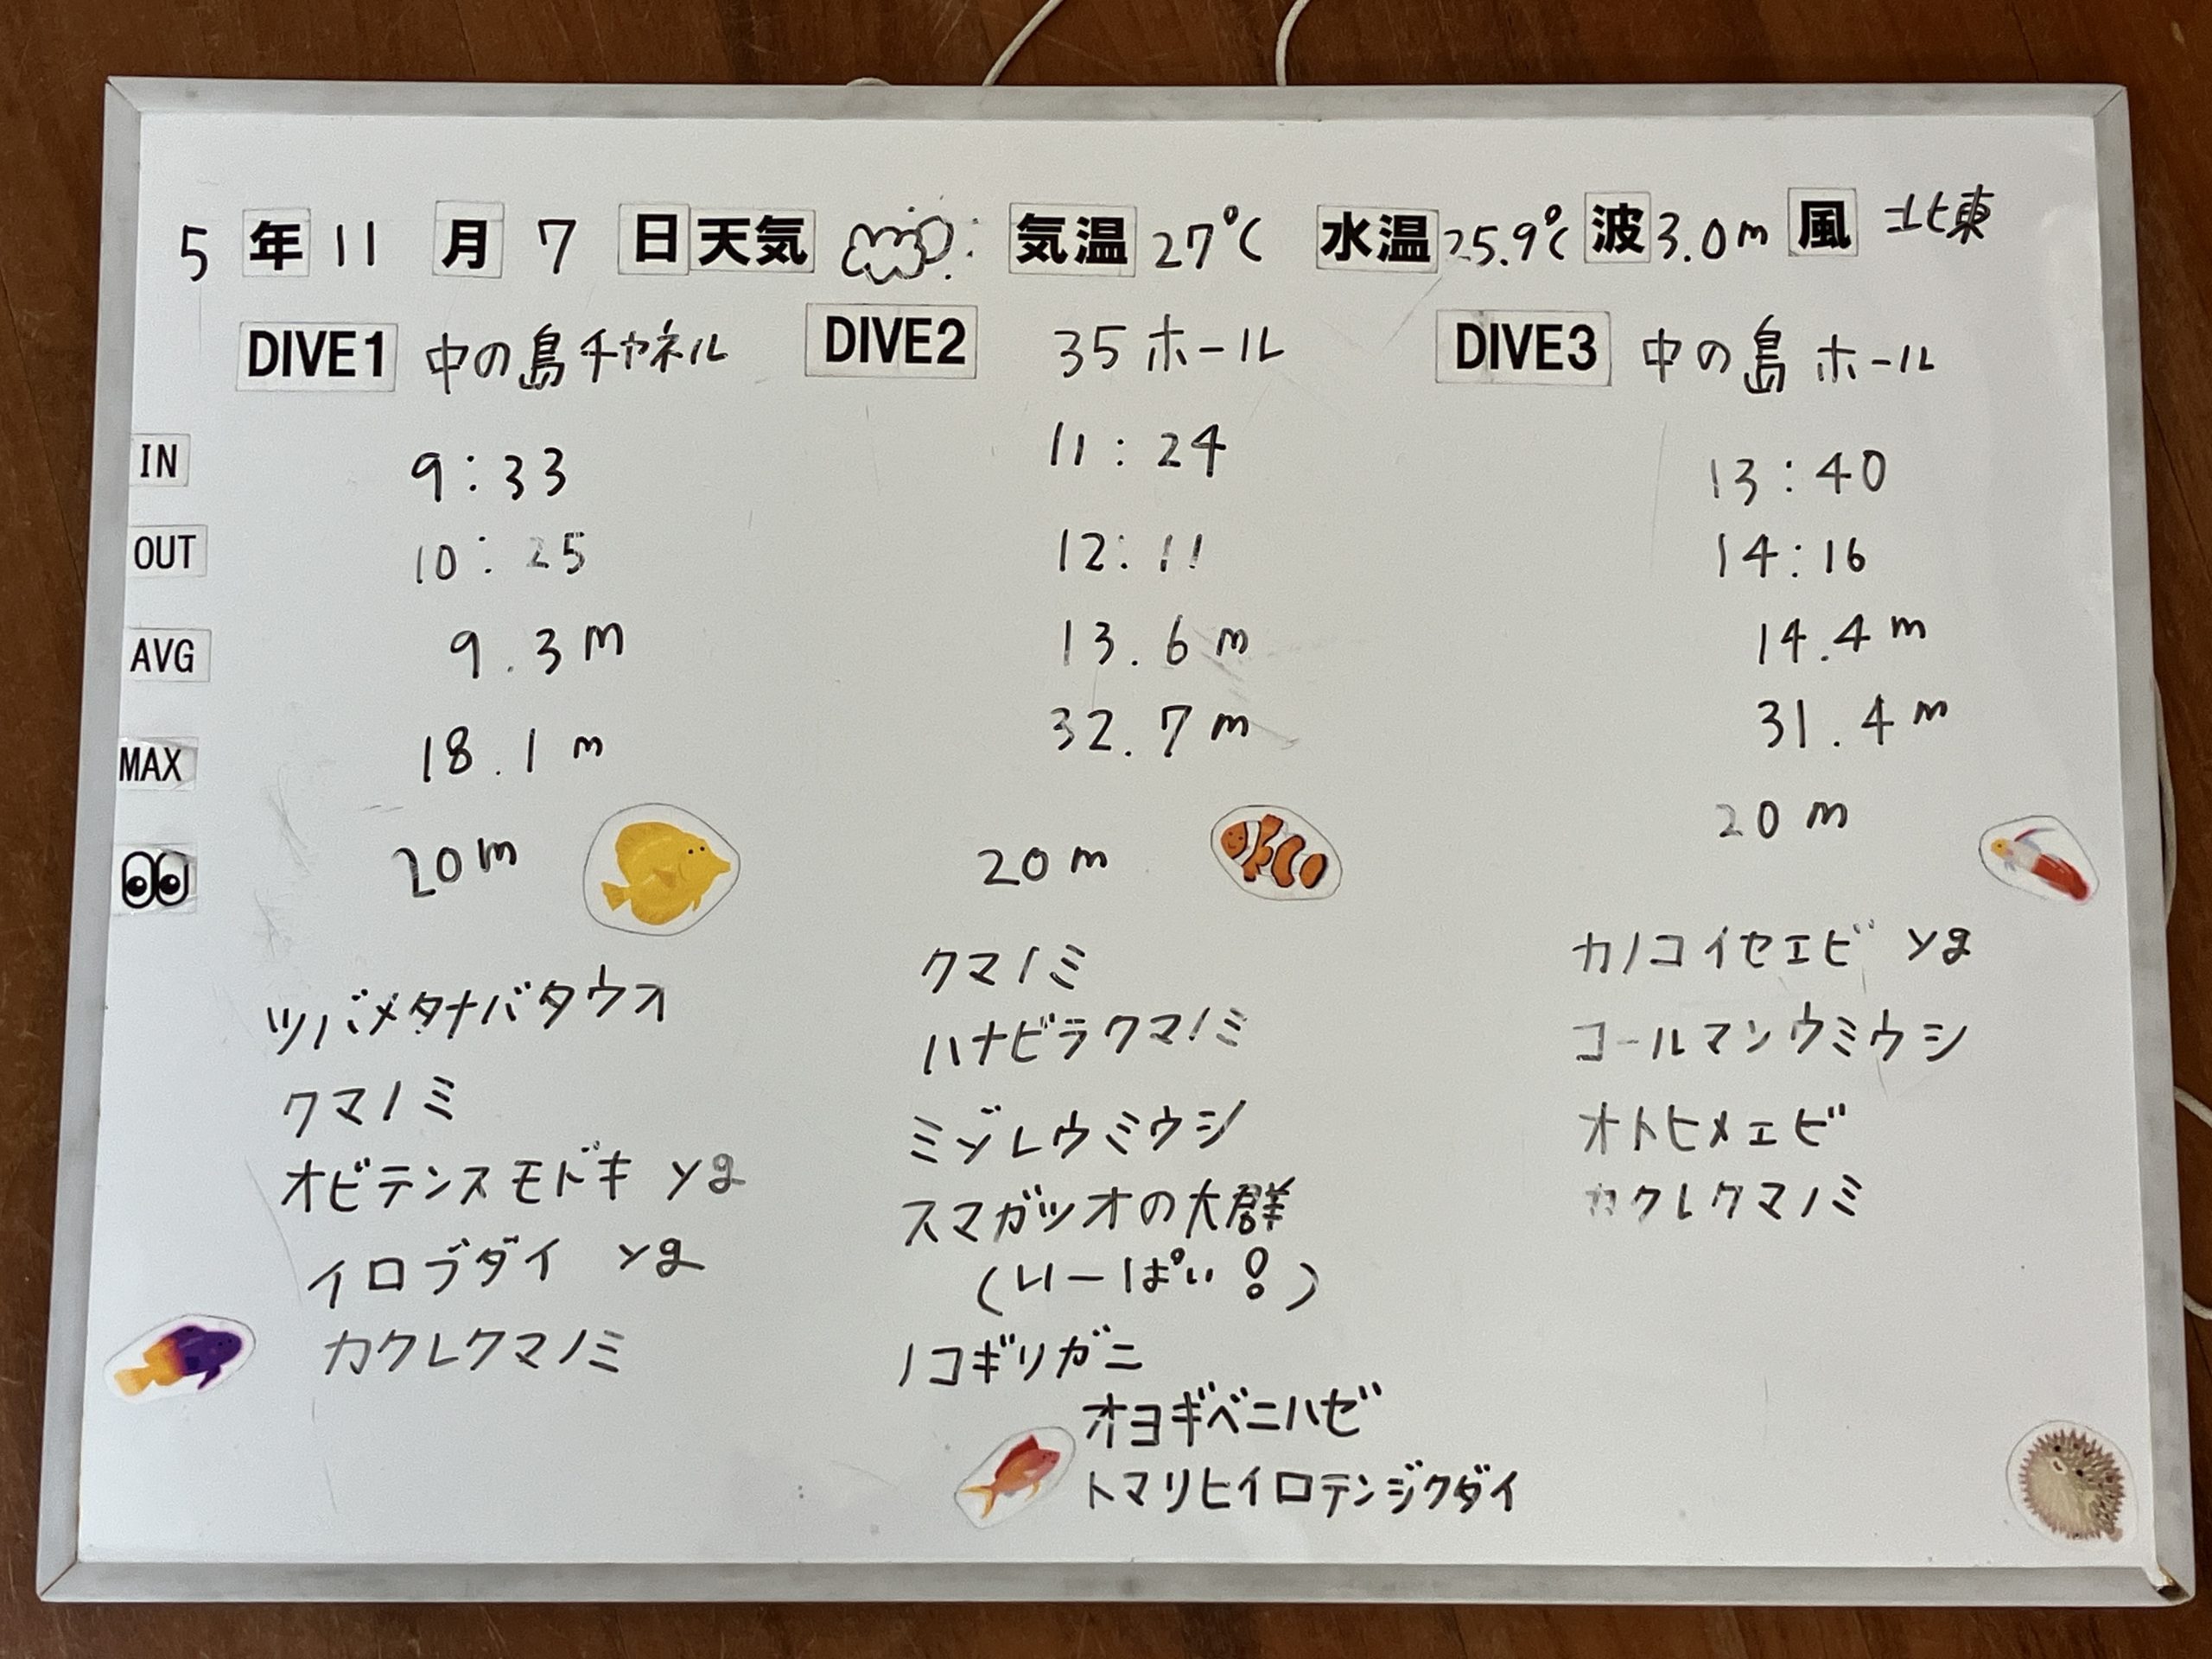 5 年 11 月 7 日 天気 気温 27℃ 水温 25.9℃ 波 3.0m 風 北東
DIVE1 中の島チャネル DIVE2 35ホール DIVE3 中の島ホール
IN 9:33 11:24 13:40
OUT 10:25 12:11 14:16
AVG 9.3m 13.6m 14.4m
MAX 18.1m 32.7m 31.4m
20m 20m 20m
ツバメタナバタウオ
クマノミ
オビテンスモドキ yg
イロブダイ yg
カクレクマノミ
クマノミ
ハナビラクマノミ
ミゾレウミウシ
スマガツオの大群
(いーぱい!)
ノコギリガニ
オヨギベニハゼ
トマリヒイロテンジクダイ
カノコイセエビ yg
コールマンウミウシ
オトヒメエビ
カクレクマノミ